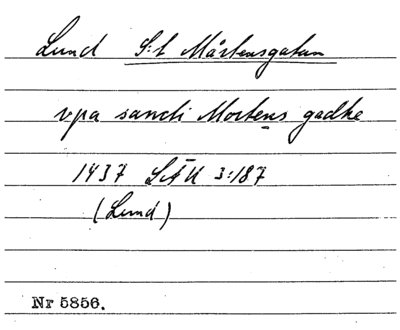 Lund S:t Mårtensgatan
vpa sancti Mortens gadhe
1437 LÄU 3:187
(Lund)
Nr 5856.